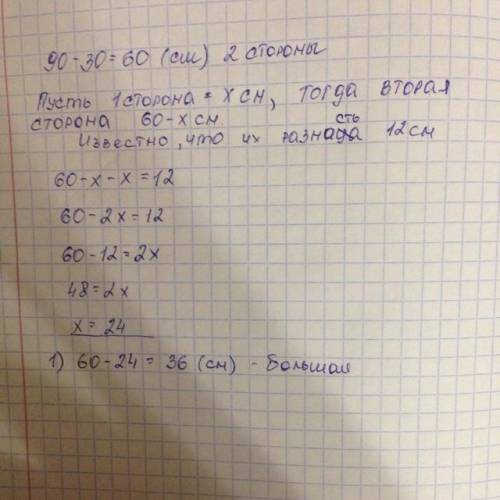 90-30=60 (см) 2 стороны
Пусть 1 сторона = х см, тогда вторая
сторона 60-х см.
Известно, что их разность 12 см
60-х-х=12
60-2х=12
60-12=2х
48=2х
х= 24
1) 60-24= 36 (см) - большая